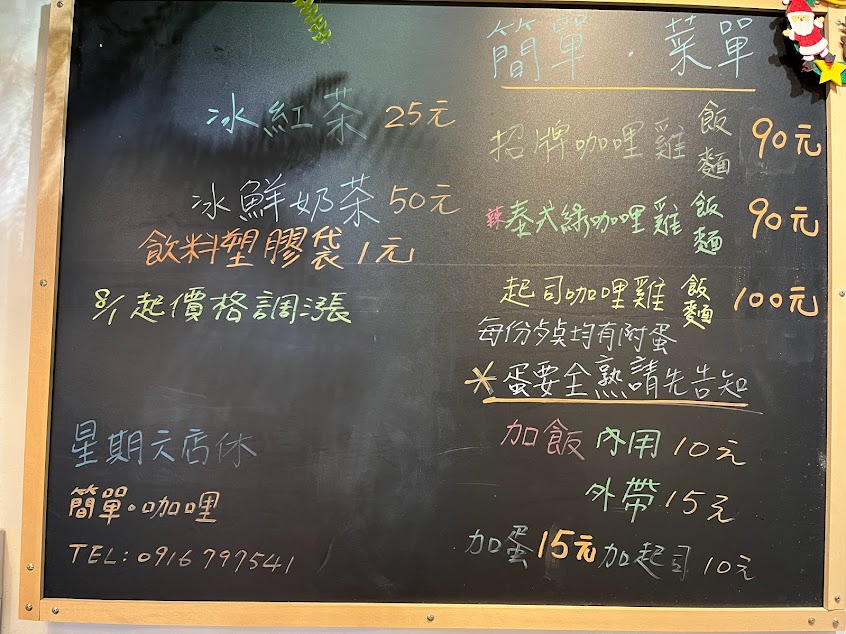 簡單·菜單
招牌咖哩雞 飯 麵 90元
辣 泰式綠咖哩雞 飯 麵 90元
起司咖哩雞 飯 麵 100元
每份均有附蛋
*蛋要全熟請先告知
加飯 內用 10元
外帶 15元
加蛋 15元 加起司 10元
冰紅茶 25元
冰鮮奶茶 50元
飲料塑膠袋 1元
8/1 起價格調漲
星期六店休
簡單。咖哩
TEL:0916797541